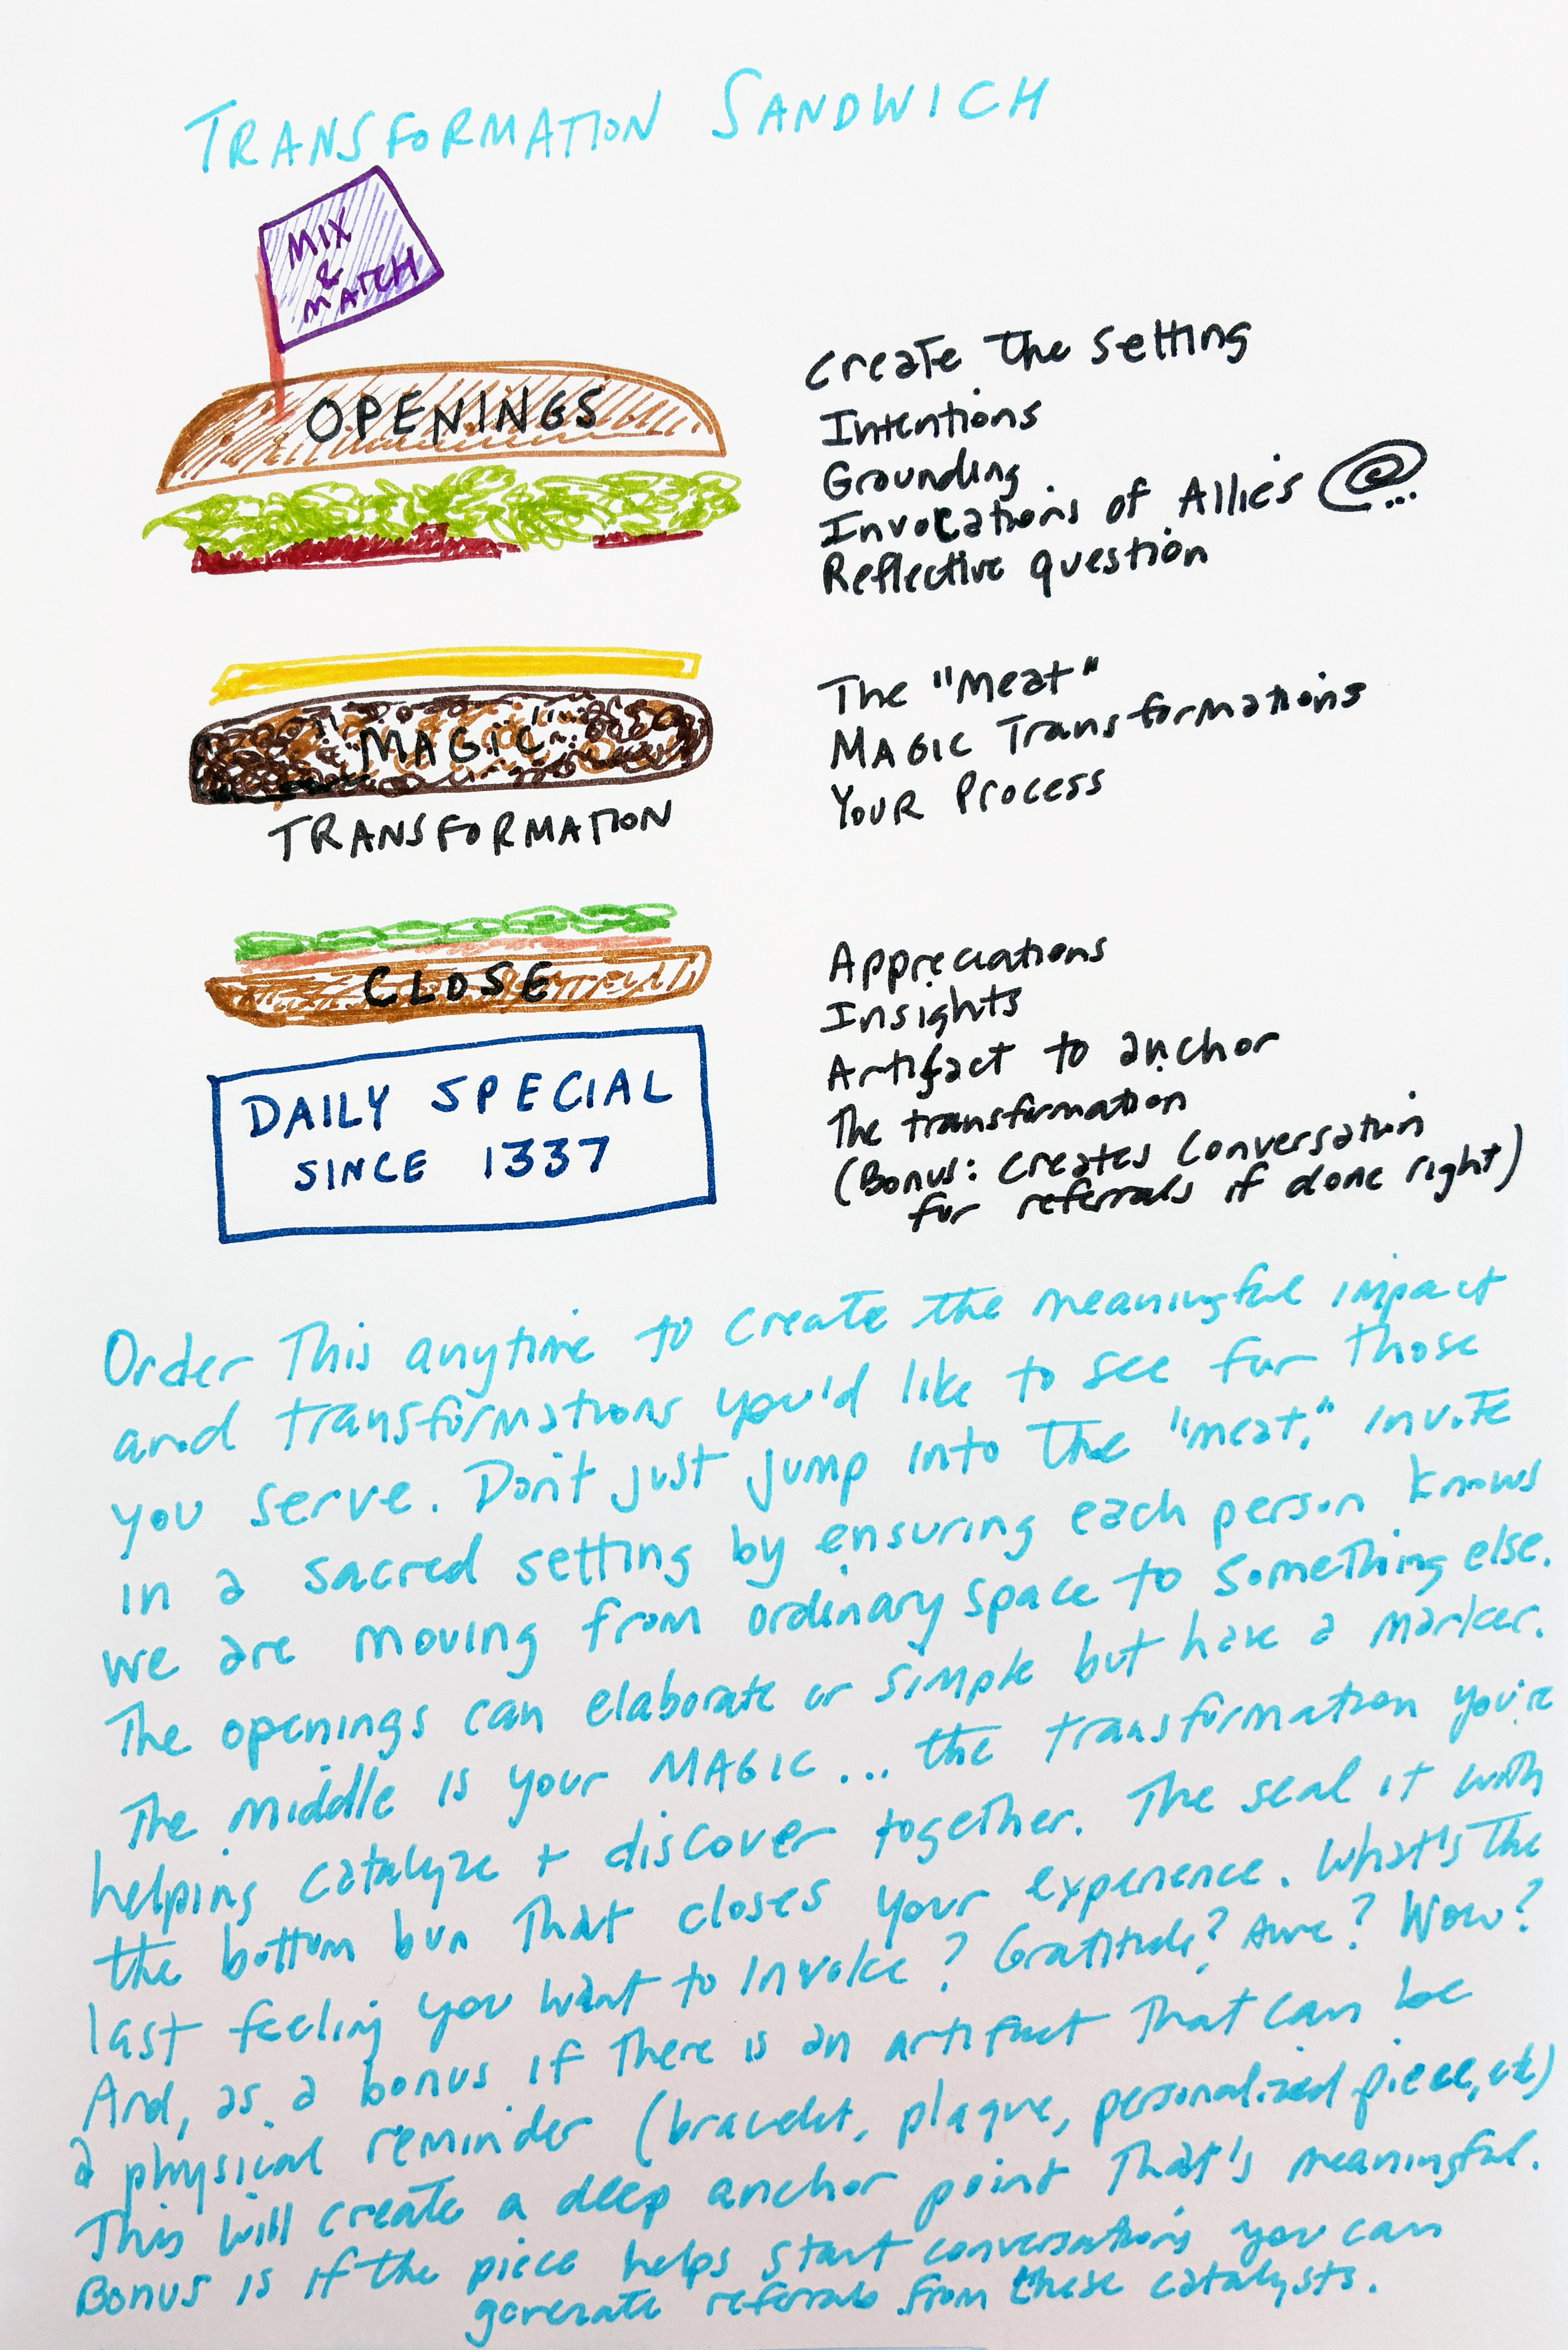 TRANSFORMATION SANDWICH
MIX
&
MATCH
OPENINGS
Create the setting
Intentions
Grounding
Invocations of Allies @...
Reflective question
"MAGIC"
TRANSFORMATION
The "Meat"
MAGIC Transformations
YOUR Process
CLOSE
Appreciations
Insights
Artifact to anchor
The transformation
(Bonus: creates conversation
for referrals if done right)
DAILY SPECIAL
SINCE 1337
Order This anytime to create the meaningful impact
and transformations you'd like to see for those
you serve. Don't just jump into the "meat," invite
in a sacred setting by ensuring each person knows
we are moving from ordinary space to something else.
The openings can elaborate or simple but have a marker.
The middle is your MAGIC... the transformation you're
helping catalyze + discover together. The seal it with
the bottom bun That closes your experience. What's the
last feeling you want to invoke? Gratitude? Awe? Wow?
And, as a bonus if there is an artifact that can be
a physical reminder (bracelet, plaque, personalized piece, etc)
This will create a deep anchor point That's meaningful.
Bonus is if the piece helps start conversations you can
generate referrals from these catalysts.